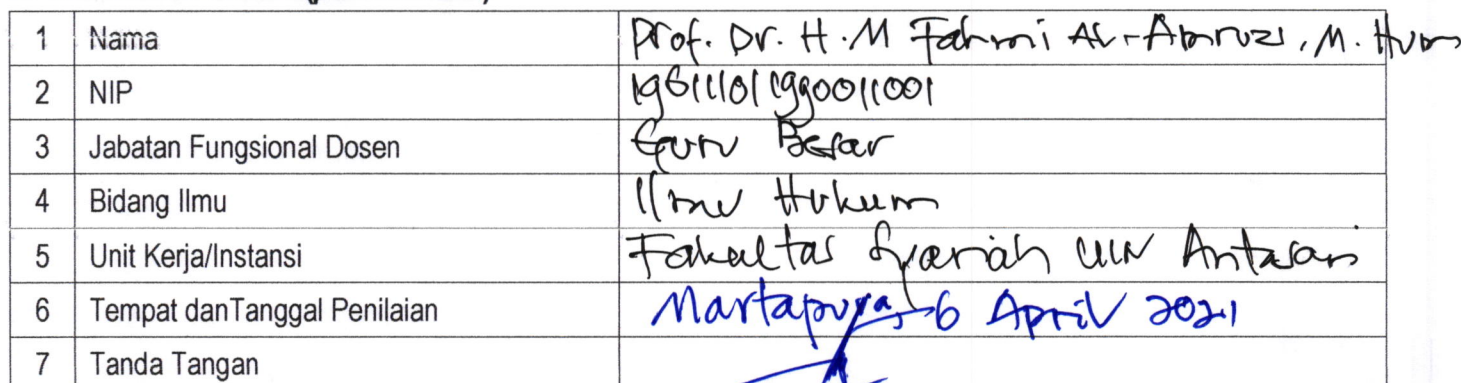 1 Nama Prof. Dr. H. M Fahmi Al-Amruzi, M. Hum
2 NIP 196111011990011001
3 Jabatan Fungsional Dosen Guru Besar
4 Bidang Ilmu Ilmu Hukum
5 Unit Kerja/Instansi Fakultas Syariah UIN Antasari
6 Tempat danTanggal Penilaian Martapura, 6 April 2021
7 Tanda Tangan